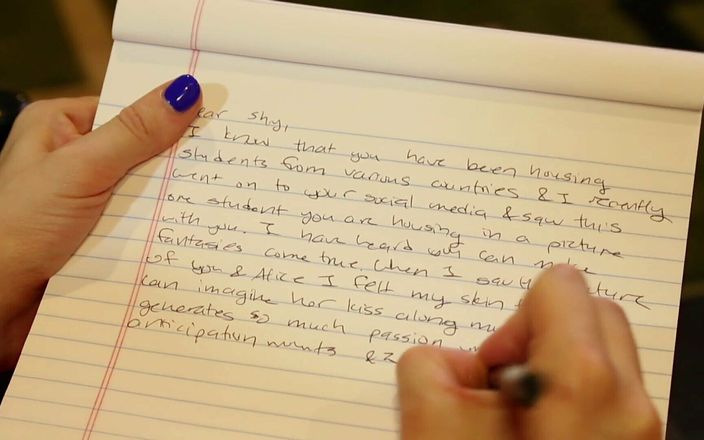 ear Shy,
I know that you have been housing
students from various countries & I recently
went on to your social media & saw this
one student you are housing in a picture
with you. I have heard you can make
fantasies come true. When I saw the picture
of you & Alice I felt my skin
can imagine her kiss along my
generates so much passion
anticipation mounts &